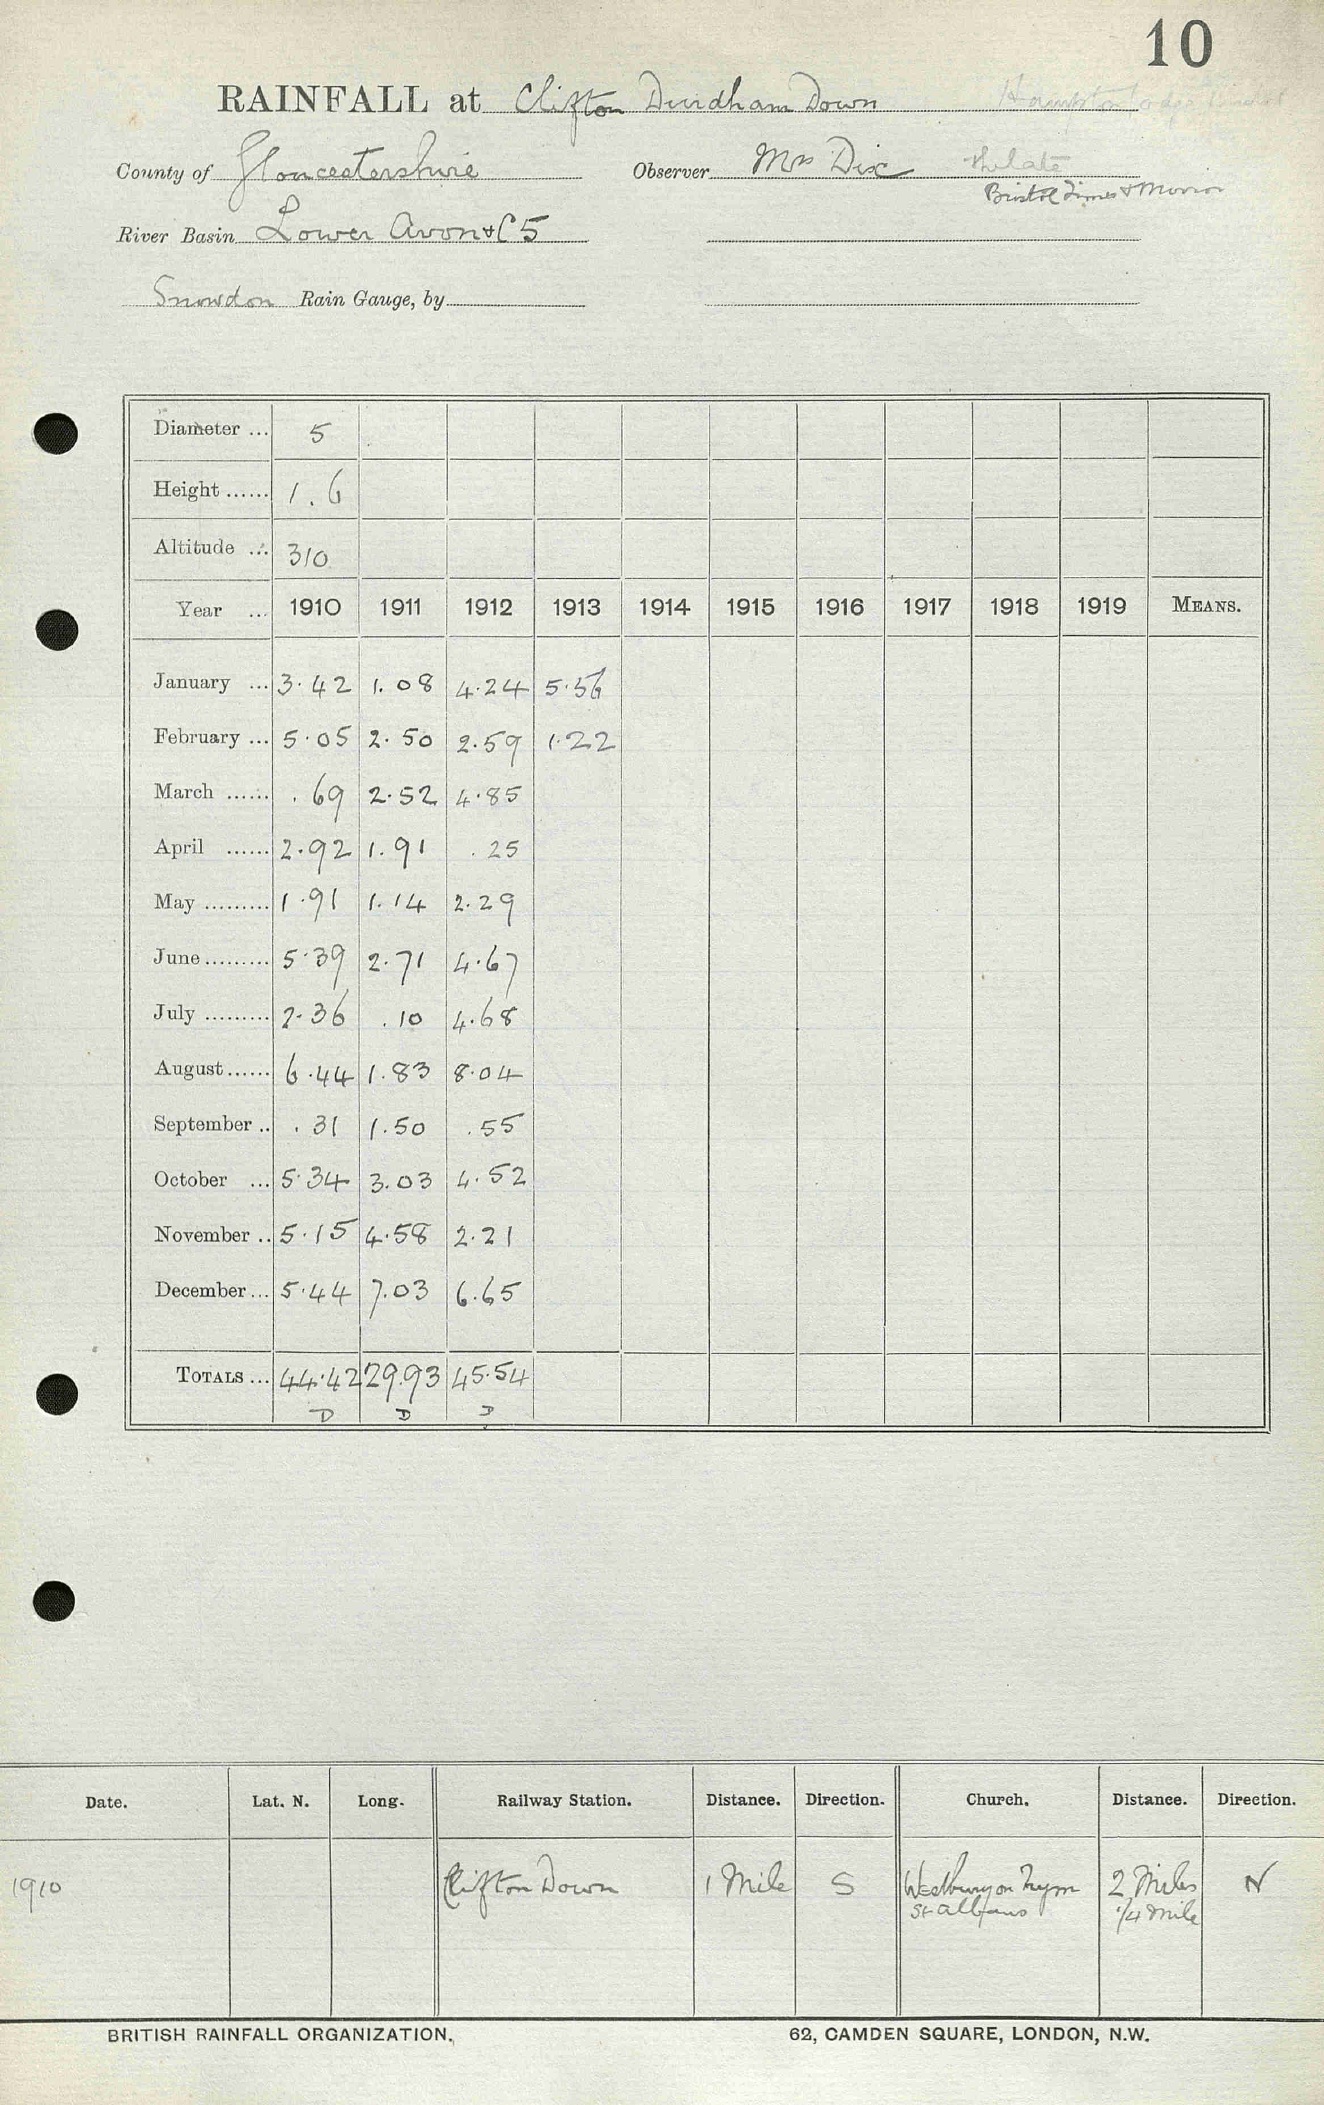 10
RAINFALL at Clifton Durdham Down Hampton Lodge
County of Gloucestershire Observer Mrs Dix the late
Bristol Times & Mirror
River Basin Lower Avon & C5
Snowdon Rain Gauge, by
Diameter ... 5
Height ...... 1.6
Altitude ... 310
Year ... 1910 1911 1912 1913 1914 1915 1916 1917 1918 1919 MEANS.
January ... 3.42 1.08 4.24 5.56
February ... 5.05 2.50 2.59 1.22
March ...... .69 2.52 4.85
April ...... 2.92 1.91 .25
May ......... 1.91 1.14 2.29
June ......... 5.39 2.71 4.67
July ......... 2.36 .10 4.68
August...... 6.44 1.83 8.04
September .. .31 1.50 .55
October ... 5.34 3.03 4.52
November .. 5.15 4.58 2.21
December... 5.44 7.03 6.65
TOTALS ... 44.42 29.93 45.54
D D D
Date. Lat. N. Long. Railway Station. Distance. Direction. Church. Distance. Direction.
1910 Clifton Down 1 Mile S Westbury on Trym 2 Miles N
St Albans 1/4 Mile
BRITISH RAINFALL ORGANIZATION. 62, CAMDEN SQUARE, LONDON, N.W.